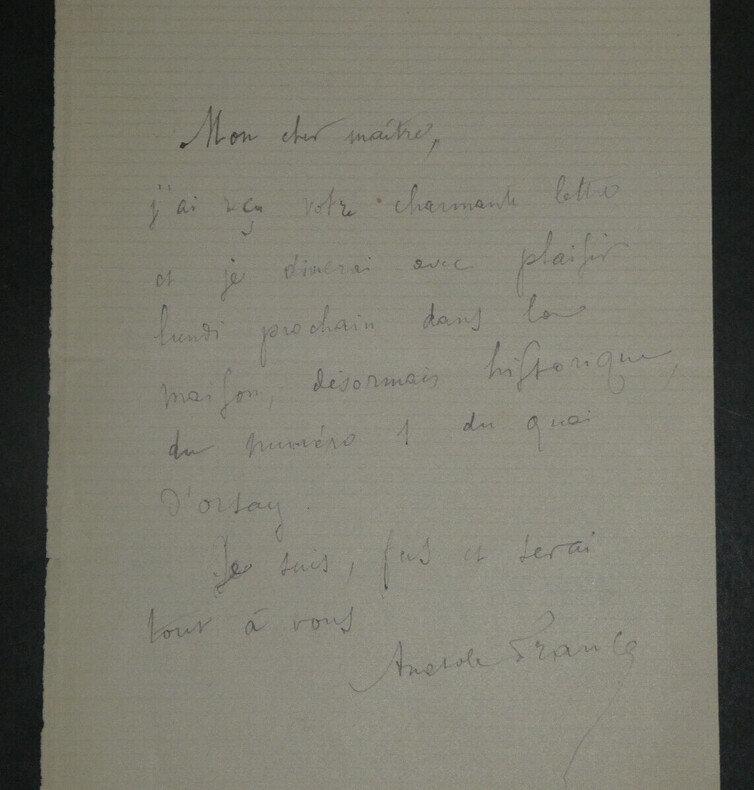 Mon cher maître,
j'ai reçu votre charmante lettre
et je dinerai avec plaisir
lundi prochain dans la
maison, désormais historique,
du numéro 1 du quai
D'orsay.
Je suis, fus et serai
tout à vous
Anatole France